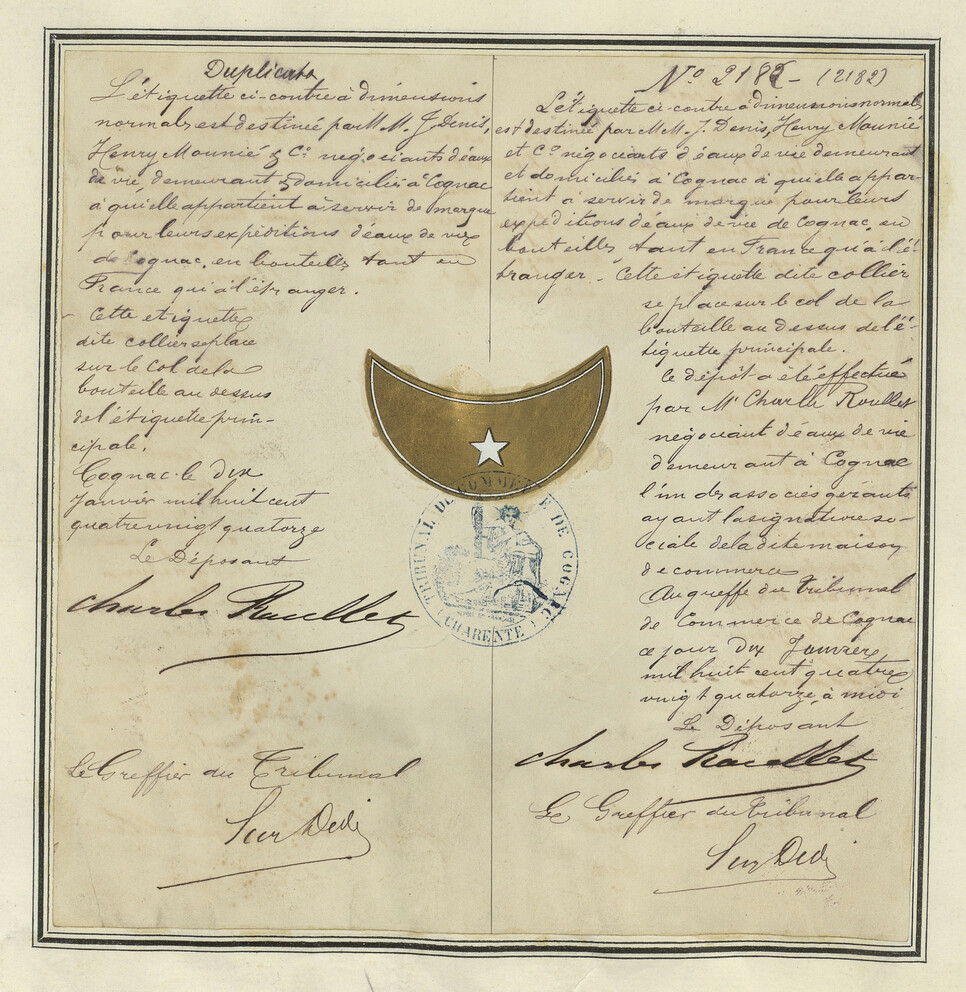 Duplicata
L'étiquette ci-contre à dimensions
normales est destinée par M.M. J Denis,
Henry Mounié & Co. négociants d'eaux
de vie, demeurant & domiciliés à Cognac
à qui elle appartient à servir de marque
pour leurs expéditions d'eaux de vie
de Cognac, en bouteilles tant en
France qu'à l'étranger.
Cette etiquette
dite collier se place
sur le col de la
bouteille au dessus
de l'étiquette prin-
cipale.
Cognac le dix
Janvier mil huit cent
quatre vingt quatorze
Le Déposant
Charles Roullet
Le Greffier du Tribunal
No 2182 - (2182)
L'étiquette ci-contre à dimensions normales
est destinée par M M. J. Denis, Henry Mounié
et Co négociants d'eaux de vie demeurant
et domiciliés à Cognac à qui elle appar-
tient a servir de marque pour leurs
expéditions d'eaux de vie de Cognac, en
bouteilles tant en France qu'à l'é-
tranger. Cette etiquette dite collier
se place sur le col de la
bouteille au dessus de l'é-
tiquette principale.
Ce dépôt a été effectué
par Mr Charles Roullet
négociant d'eaux de vie
demeurant à Cognac
l'un des associés gérants
ayant la signature so-
ciale de la dite maison
de commerce
Au greffe du Tribunal
de Commerce de Cognac
ce jour dix Janvier
mil huit cent quatre
vingt quatorze à midi
Le Déposant
Charles Roullet
Le Greffier du Tribunal
TRIBUNAL DE COMMERCE DE COGNAC
(CHARENTE)